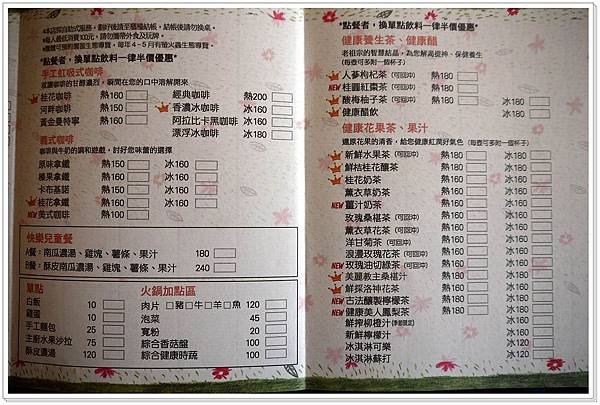 *點餐者，換單點飲料一律半價優惠*
手工虹吸式咖啡
桂花咖啡 熱160
河畔咖啡 熱150
黃金曼特寧 熱160
經典咖啡 熱200
香濃冰咖啡 冰160
阿拉比卡黑咖啡 冰160
漂浮冰咖啡 冰180
義式咖啡
咖啡與牛奶的調和遊戲，討好您味蕾的選擇
原味拿鐵 熱150 冰160
榛果拿鐵 熱160 冰160
卡布基諾 熱150 冰160
桂花拿鐵 熱160 冰160
NEW 美式咖啡 熱100
快樂兒童餐
A餐：南瓜濃湯、雞塊、薯條、果汁 180
B餐：酥皮南瓜濃湯、雞塊、薯條、果汁 240
單點
白飯 10
雞蛋 10
手工麵包 25
主廚水果沙拉 75
酥皮濃湯 120
火鍋加點區
肉片 □豬□牛□羊□魚 120
泡菜 45
寬粉 20
綜合香菇盤 100
綜合健康時蔬 100
*點餐者，換單點飲料一律半價優惠*
健康養生茶、健康醋
老祖宗的智慧結晶，為您解渴提神、保健養生
(每壺可多附一個杯子)
人蔘枸杞茶 (可回沖) 熱180
NEW 桂圓紅棗茶 (可回沖) 熱180
酸梅柚子茶 (可回沖) 熱180 冰180
健康醋飲 冰180
健康花果茶、果汁
還原花果的清香，給您健康紅潤好氣色 (每壺可多附一個杯子)
新鮮水果茶 (可回沖) 熱180 冰180
鮮桔桂花釀茶 熱180 冰180
桂花奶茶 熱160 冰160
薰衣草奶茶 熱160 冰160
NEW 薑汁奶茶 熱160 冰160
玫瑰桑椹茶 (可回沖) 熱160
薰衣草花茶 (可回沖) 熱160
洋甘菊茶 (可回沖) 熱160
浪漫玫瑰花茶 (可回沖) 熱160
NEW 玫瑰油切綠茶 (可回沖) 熱160
美麗教主桑椹汁 熱180 冰180
鮮採洛神花茶 熱160 冰160
NEW 古法釀製檸檬茶 熱180 冰180
NEW 健康美人鳳梨茶 熱180 冰180
鮮搾柳橙汁 (季節限定) 冰160
新鮮檸檬汁 冰160
冰淇淋可樂 冰120
冰淇淋蘇打 冰120